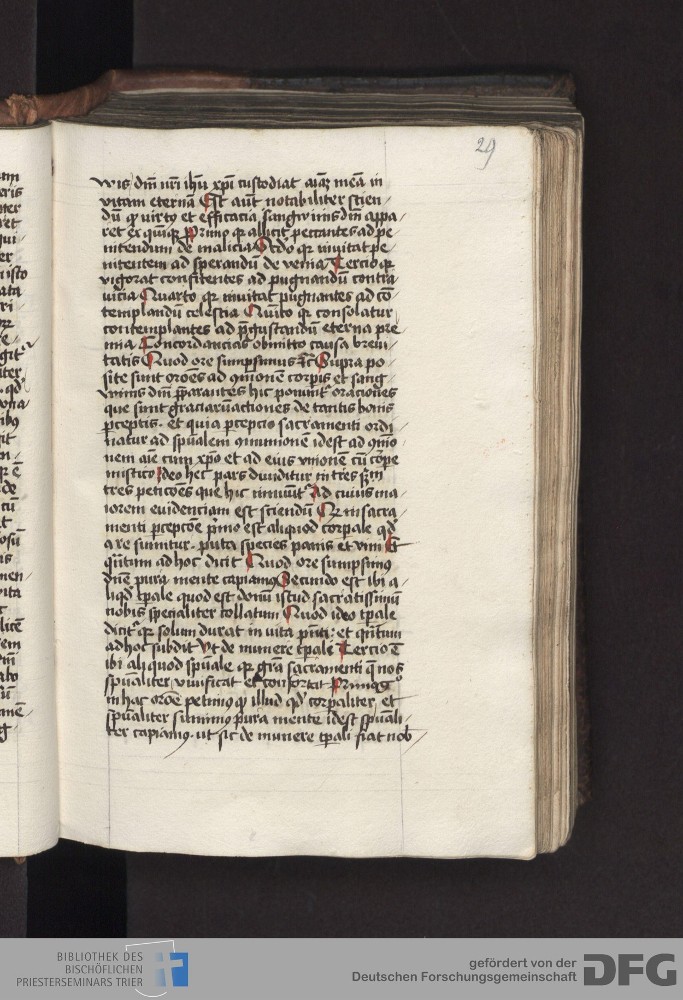 29
wis dm̄ nr̄i ihū xp̄i custodiat aīaʒ meā in
vitam eternā Est aūt notabiliter scien
dū ꝙ virt9 et efficacia sangwinis dm̄ appa
ret ex quīqꝫ Primo qꝛ allicit peccantes ad pe
nitendum de malicia Scd̄o qꝛ inuitat pe
nitentem ad sperandū de venia Tercio qꝛ
vigorat confitentes ad pugnandū contra
vicia Quarto qꝛ inuitat pugnantes ad cō
templandū celestia Quīto qꝛ consolatur
contemplantes ad p̄gustandū eterna pre
mia Concordancias obmitto causa breui
tatis Quod ore sumpsimus ⁊c̄ Supra po
site sunt orōnes ad ꝯmionē corpꝛis et sang
winis dm̄ p̄parantes hic ponunt᷑ orationes
que sunt graciaruactiones de tantis bonis
ꝑceptis. et quia ꝑcepcio sacramenti ordi
natur ad sp̄ualem ꝯmmionē idest ad ꝯmīo
nem aīe cum xp̄o et ad eius vnionem cū corpe
mistico Ideo hec pars diuiditur in tres sm̄
tres peticōes que hic innuūt᷑ Ad cuius ma
iorem euidenciam est sciendū Qꝛ in sacra
menti ꝑcepcōe p̄mo est aliquod corpale qd̄
a re sumitur. puta species panis et vini Et
qūtum ad hoc dicit Quod ore sumpsim9
dn̄e pura mente capiam9 Secundo est ibi a
liqd̄ tp̄ale quod est donū istud sacratissimū
nobis specialiter collatum Quod ideo tp̄ale
dicit᷑ qꝛ solum durat in vita pn̄ti; et qn̄tum
ad hoc subdit Vt de munere tp̄ale Tercio ē
ibi aliquod sp̄uale qꝛ gr̄a sacramenti q̄ nos
sp̄ualiter viuificat et confortat Primo g°
in hac orōe petim9 ꝙ illud qd̄ corꝑaliter et
sp̄ualiter sumim9 pura mente idest sp̄uali
ter capiam9. ut sic de munere tp̄ali fiat nob
BIBLIOTHEK DES
BISCHÖFLICHEN
PRIESTERSEMINARS TRIER
gefördert von der
Deutschen Forschungsgemeinschaft
DFG